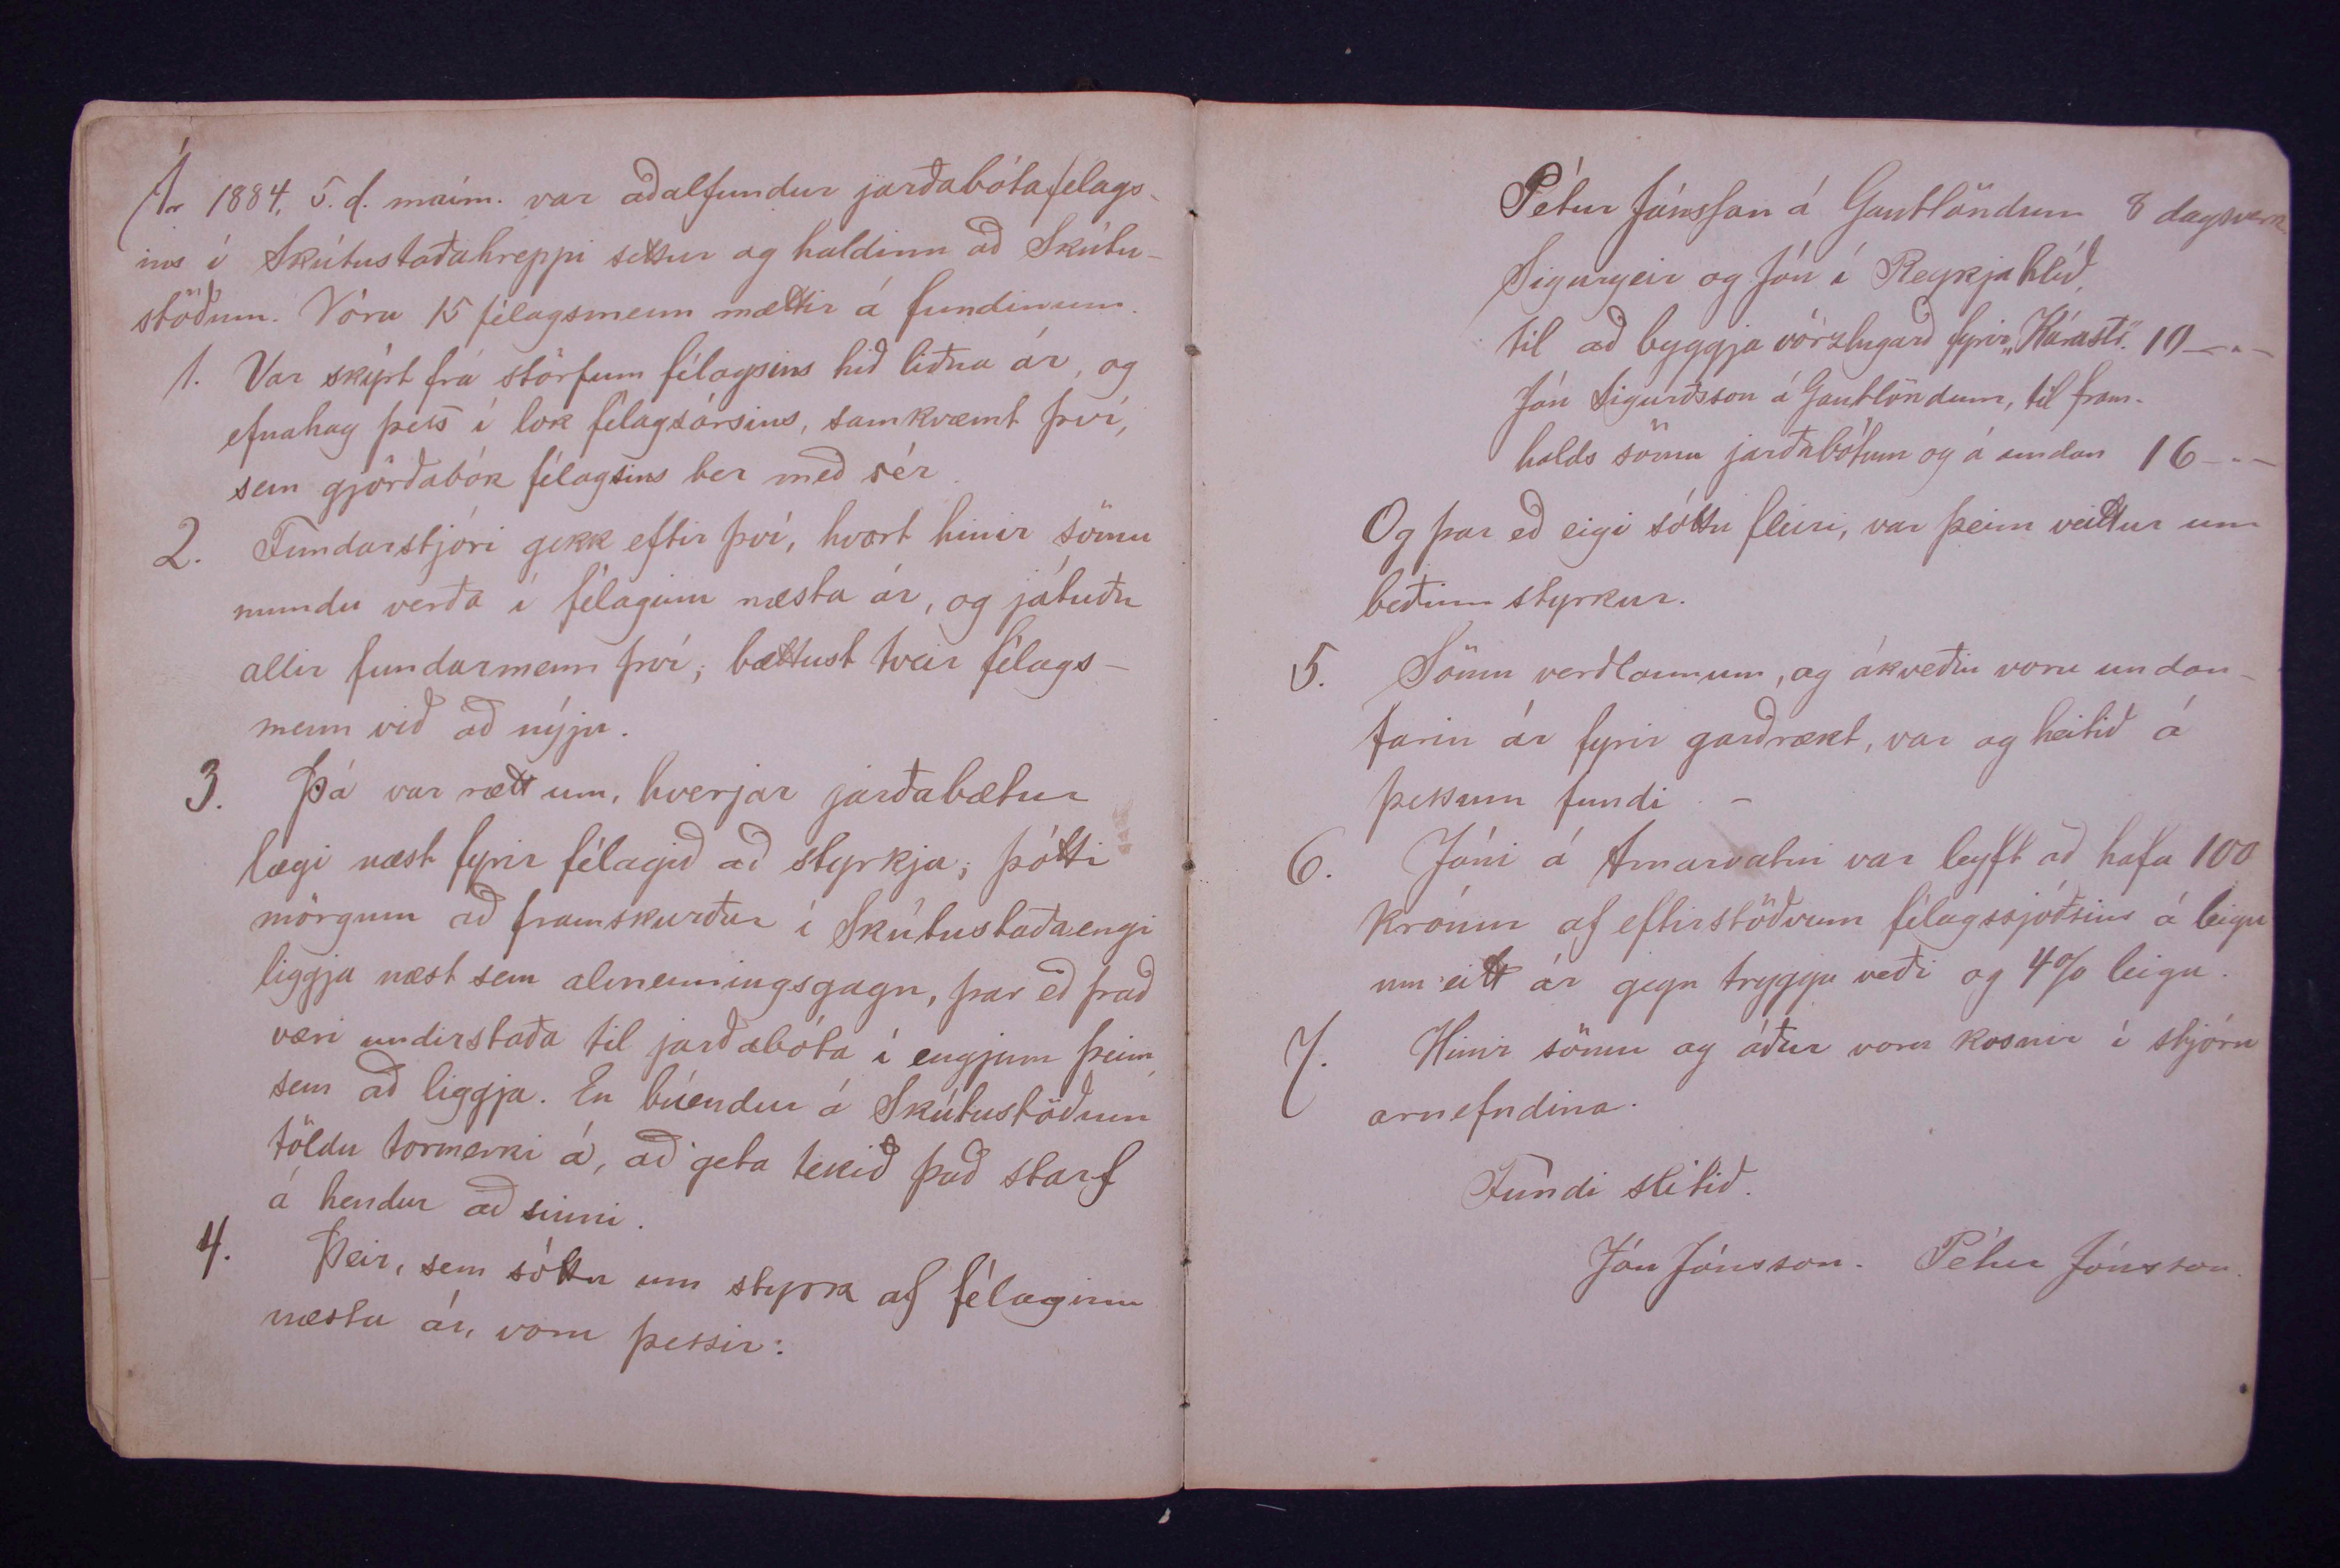 Ár 1884, 5. d. maím. var aðalfundur jarðabótafelags-
ins í Skútustaðahreppi settur og haldinn að Skútu-
stöðum. Vóru 15 félagsmenn mættir á fundinum.
1. Var skýrt frá störfum félagsins hið liðna ár, og
efnahag þess í lok félagsársins, samkvæmt því,
sem gjörðabók félagsins ber með sér.
2. Fundarstjóri gekk eftir því, hvort hinir sömu
mundu verða í félaginu næsta ár, og játuðu
allir fundarmenn því; bættust tveir félags-
menn við að nýju.
3. Þá var rætt um, hverjar jarðabætur
lægi næst fyrir félagið að styrkja; þótti
mörgum að framskurður í Skútustaðaengi
liggja næst sem almenningsgagn, þar eð það
væri undirstaða til jarðabóta í engjum þeim
sem að liggja. En búendur á Skútustöðum
töldu tormerki á, að geta tekið það starf
á hendur að sinni.
4. Þeir, sem sóttu um styrk af félaginu
næsta ár, voru þessir:
Pétur Jónsson á Gautlöndum 8 dagsverk.
Sigurgeir og Jón í Reykjahlíð,
til að byggja vörzlugarð fyrir „ 10 — . —
Jón Sigurðsson á Gautlöndum, til fram-
halds sömu jarðabótum og á undan 16 — . —
Og þar eð eigi sóttu fleiri, var þeim veittur um
beðinn styrkur.
5. Sömu verðlaunum, og ákveðin voru undan-
farin ár fyrir garðrækt, var og heitið á
þessum fundi. -
6. Jóni á Arnarvatni var leyft að hafa 100
krónur af eftirstöðvum félagssjóðsins á leigu
um eitt ár gegn tryggu veði og 4% leigu.
7. Hinir sömu og áður voru kosnir í stjórn
arnefndina.
Fundi slitið.
Jón Jónsson. Pétur Jónsson.